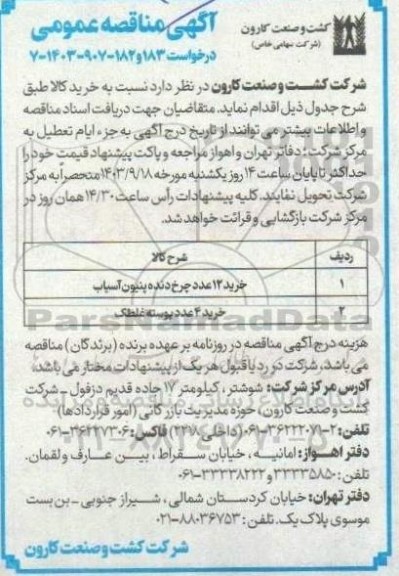 آگهی مناقصه عمومی
درخواست ۱۸۳ و ۱۸۲-۹۰۷-۱۴۰۳-۷
شرکت کشت و صنعت کارون
(شرکت سهامی خاص)
شرکت کشت و صنعت کارون در نظر دارد نسبت به خرید کالا طبق
شرح جدول ذیل اقدام نماید. متقاضیان جهت دریافت اسناد مناقصه
و اطلاعات بیشتر می توانند از تاریخ درج آگهی به جزء ایام تعطیل به
مرکز شرکت؛ دفاتر تهران و اهواز مراجعه و پاکت پیشنهاد قیمت خود را
حداکثر تا پایان ساعت ۱۴ روز یکشنبه مورخه ۱۴۰۳/۹/۱۸ منحصراً به مرکز
شرکت تحویل نمایند. کلیه پیشنهادات رأس ساعت ۱۴/۳۰ همان روز در
مرکز شرکت بازگشایی و قرائت خواهد شد.
ردیف شرح کالا
۱ خرید ۱۲ عدد چرخ دنده پنیون آسیاب
۲ خرید ۴ عدد پوسته غلطک
هزینه درج آگهی مناقصه در روزنامه بر عهده برنده (برندگان) مناقصه
می باشد، شرکت در رد یا قبول هر یک از پیشنهادات مختار می باشد.
آدرس مرکز شرکت: شوشتر، کیلومتر ۱۷ جاده قدیم دزفول _ شرکت
کشت و صنعت کارون، حوزه مدیریت بازرگانی (امور قراردادها)
تلفن: ۲-۳۶۲۲۲۰۷۱-۰۶۱ (داخلی ۲۲۷) فاکس: ۳۶۲۲۷۳۰۶-۰۶۱
دفتر اهواز: امانیه، خیابان سقراط، بین عارف و لقمان.
تلفن: ۳۳۳۳۵۸۵۰ و ۳۳۳۳۸۲۲۲-۰۶۱
دفتر تهران: خیابان کردستان شمالی، شیراز جنوبی _ بن بست
موسوی پلاک یک. تلفن: ۸۸۰۳۶۷۵۳-۰۲۱
شرکت کشت و صنعت کارون
ParsNamadData